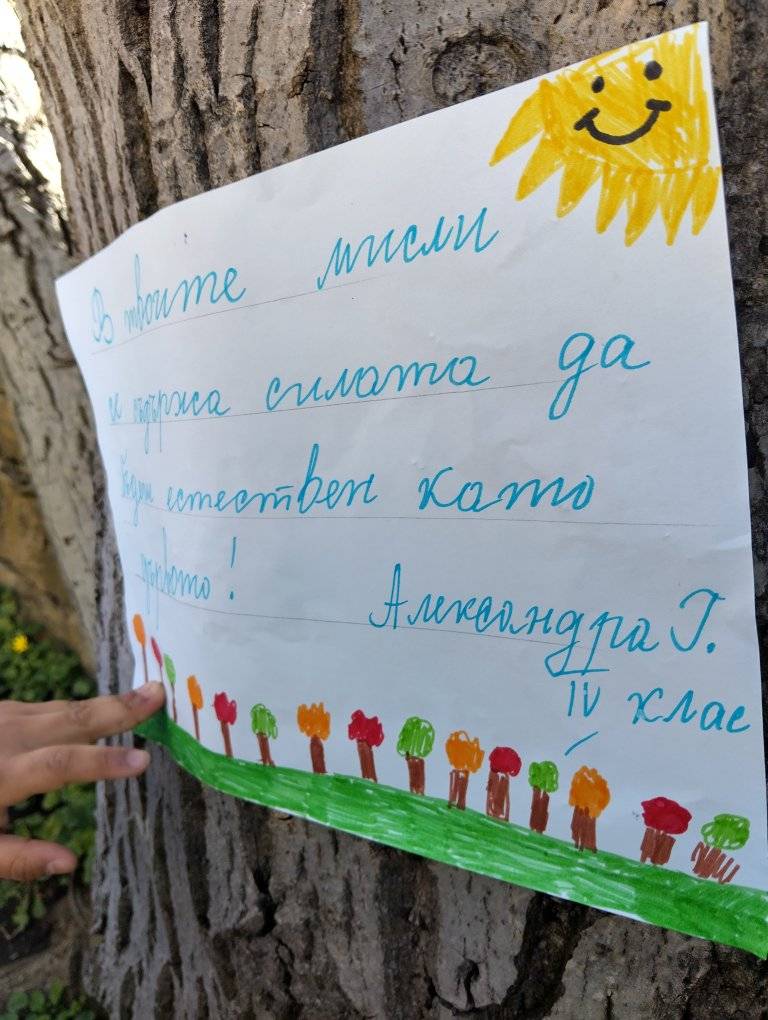 В твоите мисли
се съдържа силата да
бъдеш естествен като
дървото!
Александра Г.
IV клас